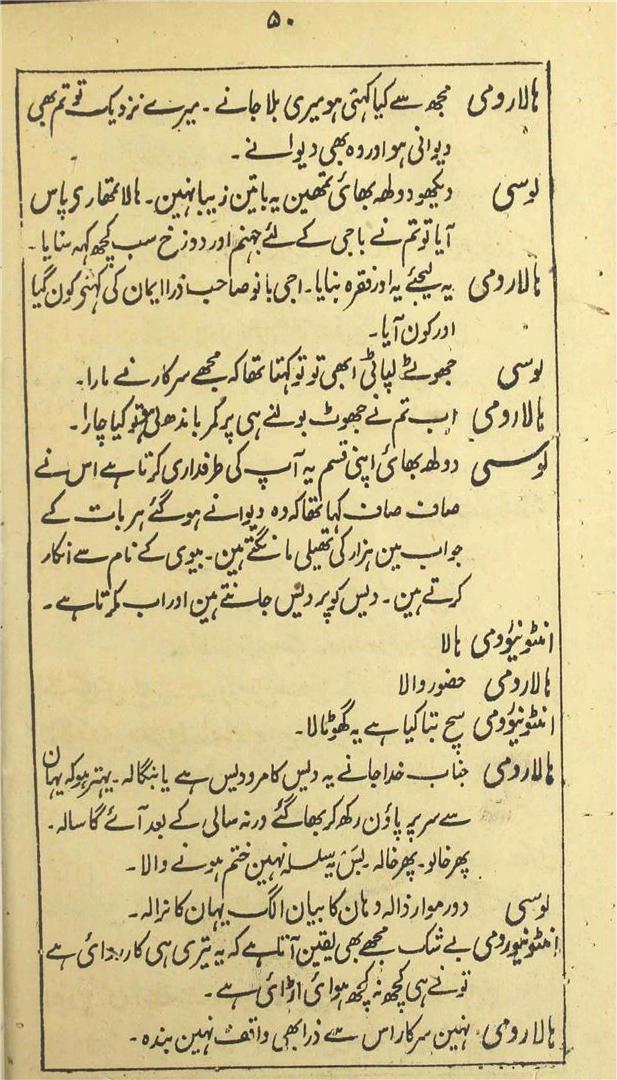 ۵۰
ہالارومی مجھ سے کیا کہتی ہو میری بلا جانے ۔ میرے نزدیک تو تم بھی
دیوانی ہو اور وہ بھی دیوانے ۔
لوسی دیکھو دولھ بھائی تمھین یہ باتین زیبا نہین ۔ ہالا تمھاری پاس
آیا تو تم نے باجی کے لئے جہنم اور دوزخ سب کچھ کہہ سنایا ۔
ہالارومی یہ لیجئے یہ اور فقرہ بنایا ۔ اجی بانو صاحب ذرا ایمان کی کہنی کون گیا
اور کون آیا ۔
لوسی جھوٹے لپاٹی ابھی تو تو کہتا تھا کہ مجھے سرکار نے مارا ۔
ہالارومی اب تم نے جھوٹ بولنے ہی پر کمر باندھ لی تو کیا چارا ۔
لوسی دولھ بھائی اپنی قسم یہ آپ کی طرفداری کرتا ہے اس نے
صاف صاف کہا تھا کہ وہ دیوانے ہو گئے ہر بات کے
جواب مین ہزار کی تھیلی مانگتے ہین ۔ بیوی کے نام سے انکار
کرتے ہین ۔ دیس کو پردیس جانتے ہین اور اب مکرتا ہے ۔
انٹونیوٗرومی ہالا
ہالارومی حضور والا
انٹونیوٗرومی سچ بتا کیا ہے یہ گھوٹالا ۔
ہالارومی جناب خدا جانے یہ دیس کامرو دیس ہے یا بنگالہ ۔ بہتر ہو کہ یہان
سے سر پر پاؤن رکھ کر بھاگئے ورنہ سالی کے بعد آئے گا سالہ ۔
پھر خالو ۔ پھر خالہ ۔ بس یہ سلسلہ نہین ختم ہونے والا ۔
لوسی دور موا رذالہ وہان کا بیان الگ یہان کا نرالہ ۔
انٹونیورومی بے شک مجھے بھی یقین آتا ہے کہ یہ تیری ہی کارروائی ہے
تو نے ہی کچھ نہ کچھ ہوائی اڑائی ہے ۔
ہالارومی نہین سرکار اس سے ذرا بھی واقف نہین بندہ ۔